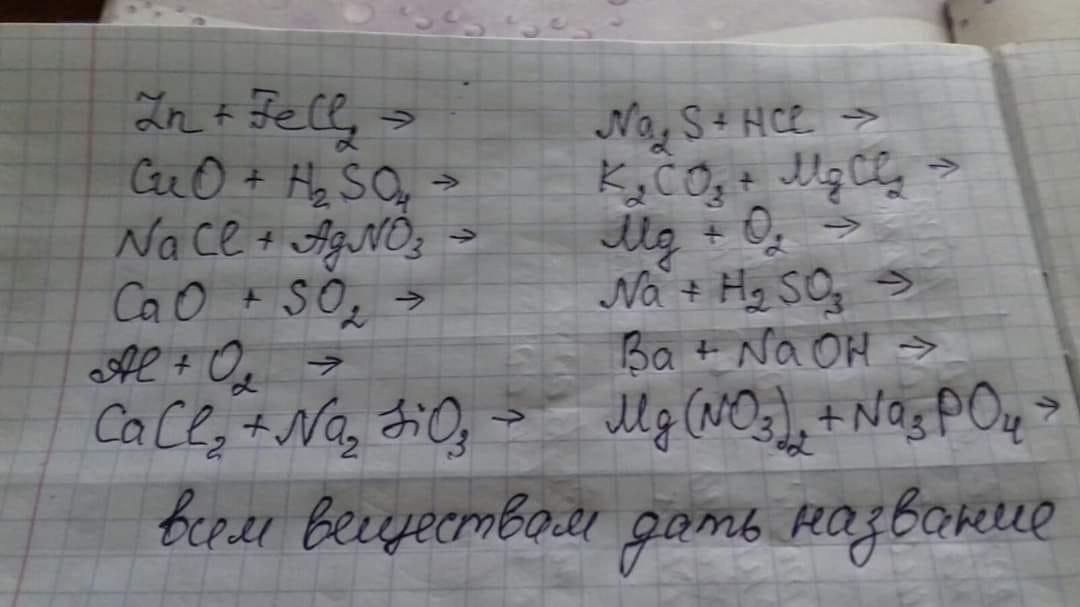 Zn + FeCl₂ →
CuO + H₂SO₄ →
NaCl + AgNO₃ →
CaO + SO₂ →
Al + O₂ →
CaCl₂ + Na₂SiO₃ →
Na₂S + HCl →
K₂CO₃ + MgCl₂ →
Mg + O₂ →
Na + H₂SO₃ →
Ba + NaOH →
Mg(NO₃)₂ + Na₃PO₄ →
всем веществам дать название